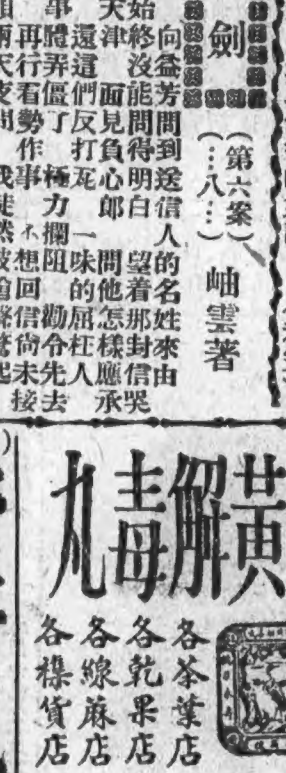 劍
（第六案）
（…八…）
岫雲著
向益芳問到送信人的名姓來由
始終沒能問得明白　望着那封信哭
天津　面見負心郎　問他怎樣應承
還這們反打瓦　一味的屈枉人
事體弄僵了　極力攔阻　勸令先去
再行看勢作事　不想回信尚未接
黃解毒丸
各茶葉店
各乾果店
各線麻店
各襍貨店